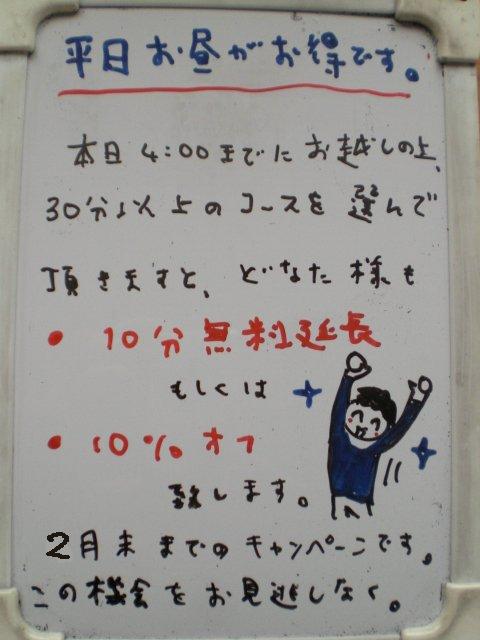 平日お昼がお得です。
本日4:00までにお越しの上、
30分以上のコースを選んで
頂きますと、どなた様も
• 10分無料延長
もしくは
• 10%オフ
致します。
2月末までのキャンペーンです。
この機会をお見逃しなく。